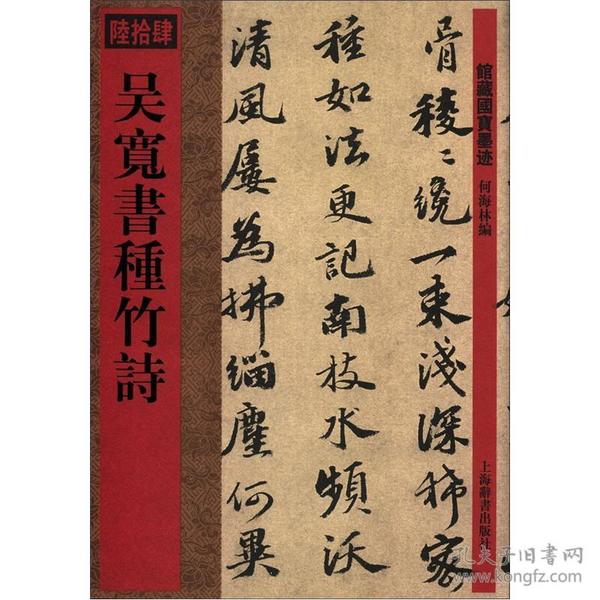 陸拾肆
吴寬書種竹詩
館藏國寶墨迹
何海林編
上海辭書出版社
骨稜〻繞一束淺深稀密
種如法更記南枝水頻沃
清風屢為拂緇塵何異
孔夫子旧书网
www.kongfz.com